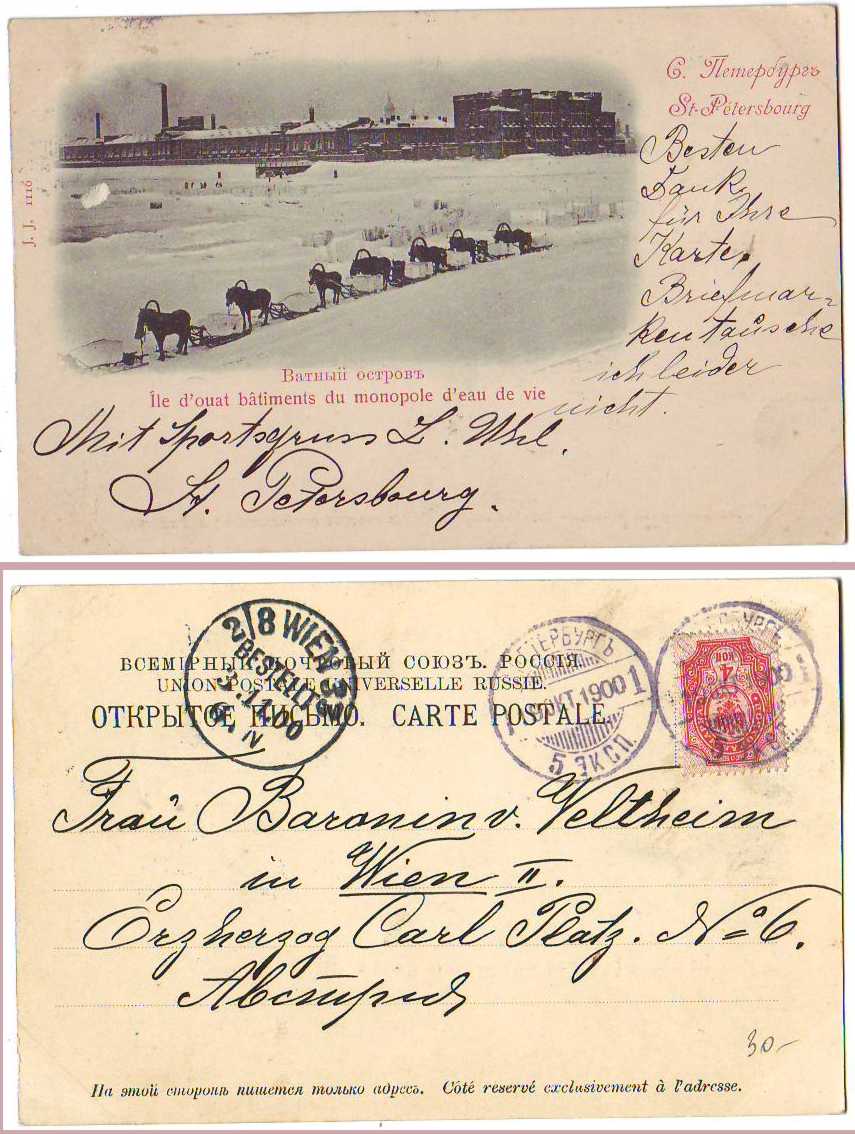 С. Петербургъ
St-Pétersbourg
J. J. 1116
Besten
Dank
für Ihre
Karte.
Briefmar-
ken tausche
ich leider
nicht.
Ватный островъ
Île d'ouat bâtiments du monopole d'eau de vie
Mit Sportsgruss L. Uhl.
St. Petersbourg.
2/8 WIEN 3
BESTELLT
00
IV
ПЕТЕРБУРГЪ
ОКТ 1900
1
5 ЭКСП.
1900
4 КОП
ВСЕМІРНЫЙ ПОЧТОВЫЙ СОЮЗЪ. РОССІЯ.
UNION POSTALE UNIVERSELLE RUSSIE.
ОТКРЫТОЕ ПИСЬМО. CARTE POSTALE.
Frau Baronin v. Veltheim
in Wien II.
Erzherzog Carl Platz. No 6.
Австрія
30-
На этой сторонѣ пишется только адресъ. Côté reservé exclusivement à l'adresse.